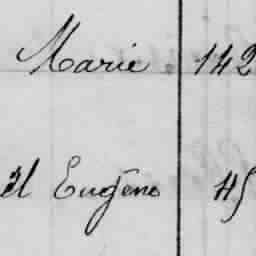 Marie 142
el Eugène 45